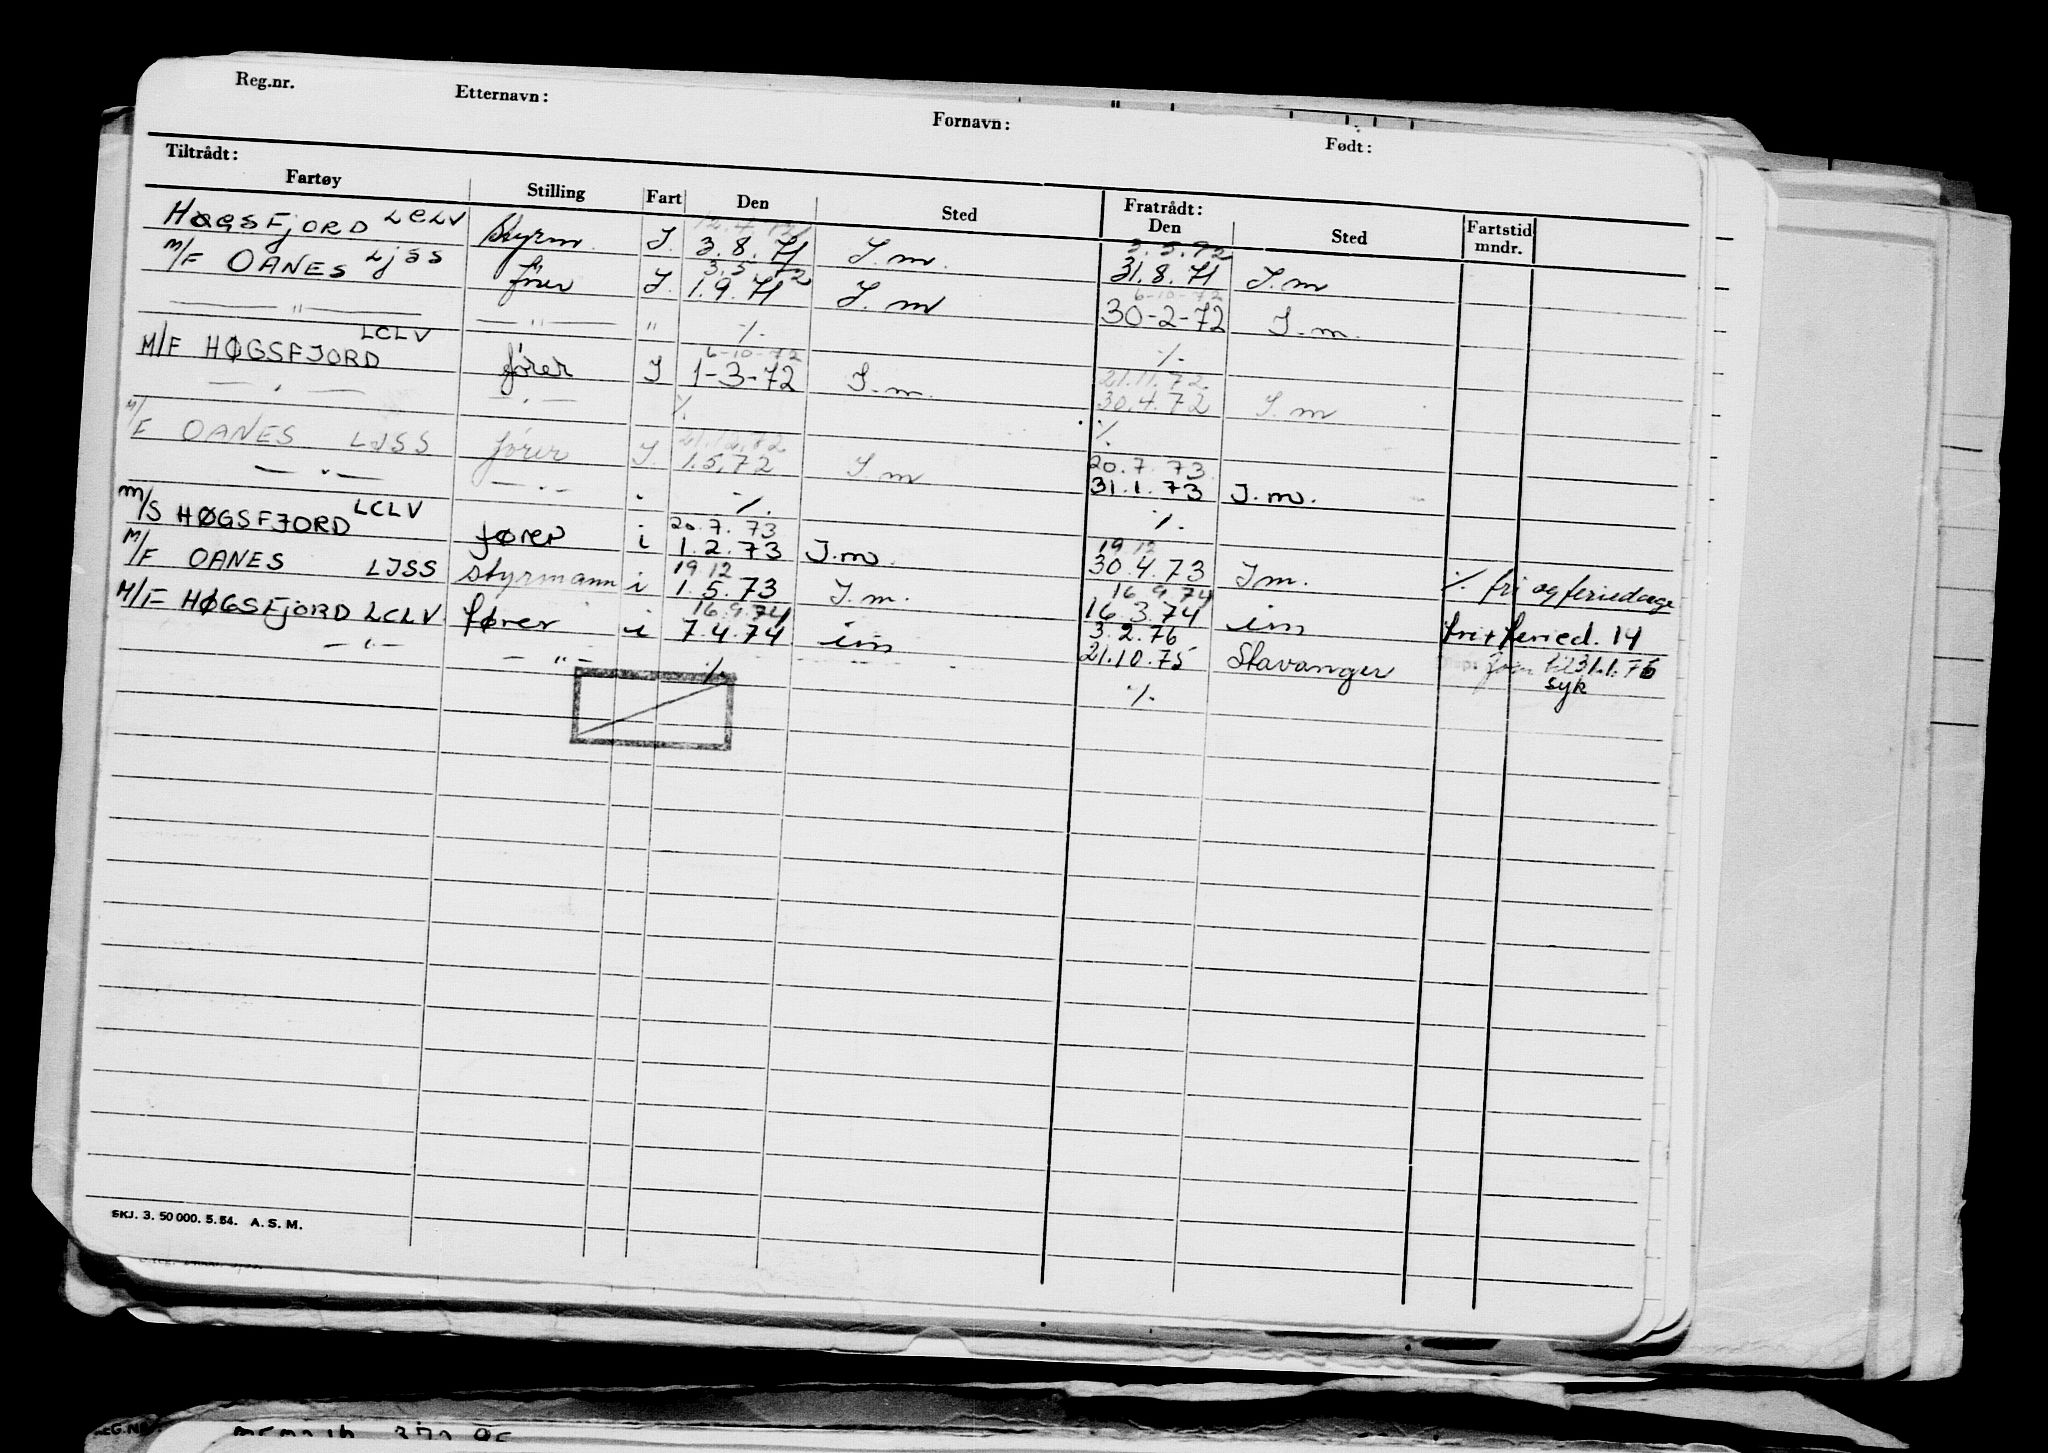 Reg.nr. Etternavn: Fornavn: Født:
Tiltrådt: Fratrådt:
Fartøy Stilling Fart Den Sted Den Sted Fartstid mndr.
3.5.72
HØGSFJORD LCLV Styrm. I. 3.8.71 I.m. 31.8.71 I.m
3.5.72 6-10-72
M/F OANES LJSS fører I. 1.9.71 I.m 30-2-72 I.m.
— " — — " — " ·/. ·/.
6-10-72 21.11.72
M/F HØGSFJORD LCLV fører I 1-3-72 I.m. 30.4.72 I.m
— " — — " — ·/. ·/.
20.7.73
M/F OANES LJSS fører I. 1.5.72 I.m 31.1.73 I.m.
— " — — " — " ·/. ·/.
20.7.73 19.12
M/S HØGSFJORD LCLV fører i 1.2.73 I.m. 30.4.73 Im. ·/. fri og feriedage
19.12 16.9.74
M/F OANES LJSS styrmann i 1.5.73 I.m. 16.3.74 im fri + feried. 14
16.9.74 3.2.76
M/F HØGSFJORD LCLV fører i 7.4.74 im 21.10.75 Stavanger 31.1.76
— " — — " — ·/. ·/. syk
SKJ. 3. 50 000. 5.54. A. S. M.